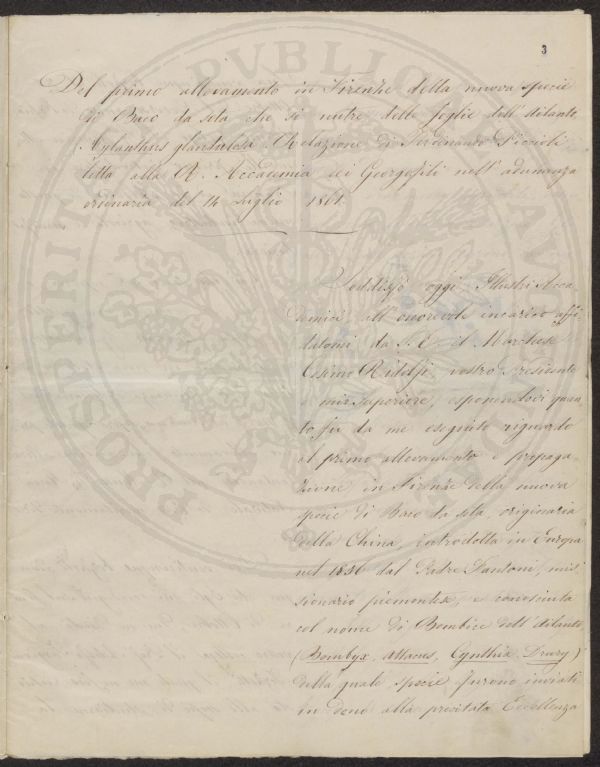 3
Del primo allevamento in Firenze della nuova specie
di Baco da seta che si nutre delle foglie dell'Ailanto
Aylanthus glandulosa. Relazione di Ferdinando Piccioli
letta alla R. Accademia dei Georgofili nell'adunanza
ordinaria del 14 Luglio 1861.
Soddisfo oggi, Illustri Acca-
demici, all'onorevole incarico affi-
datomi da S. E. il Marchese
Cosimo Ridolfi, vostro Presidente
e mio superiore, esponendovi quan-
to fu da me eseguito riguardo
al primo allevamento e propaga-
zione in Firenze della nuova
specie di Baco da seta, originaria
della China, introdotta in Europa
nel 1856 dal Padre Fantoni, mis-
sionario piemontese, e conosciuta
col nome di Bombice dell'Ailanto
(Bombyx, Attacus, Cynthia Drury)
della quale specie furono inviati
in dono alla prelodata Eccellenza
PROSPERITATI PVBLICAE AVGENDAE